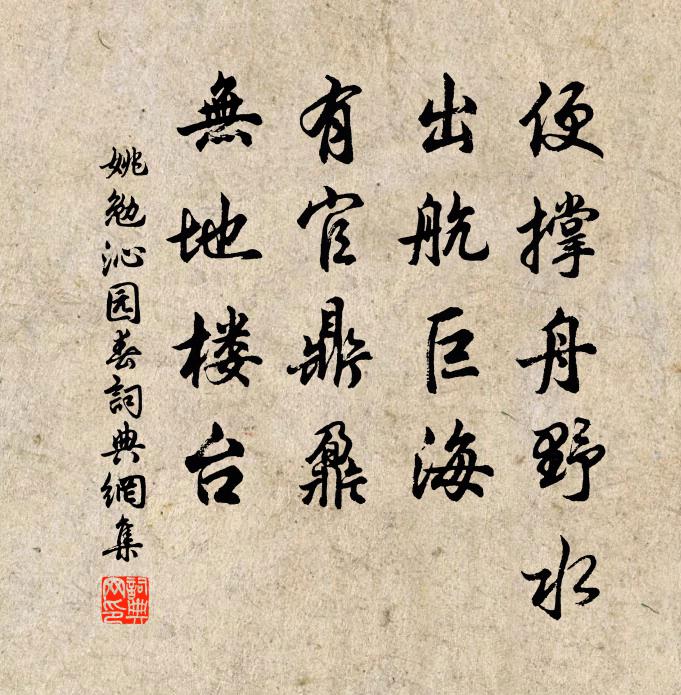 便撑舟野水
出航巨海
有官鼎鼐
無地楼台
姚勉沁园春詞典網集
詞典网印